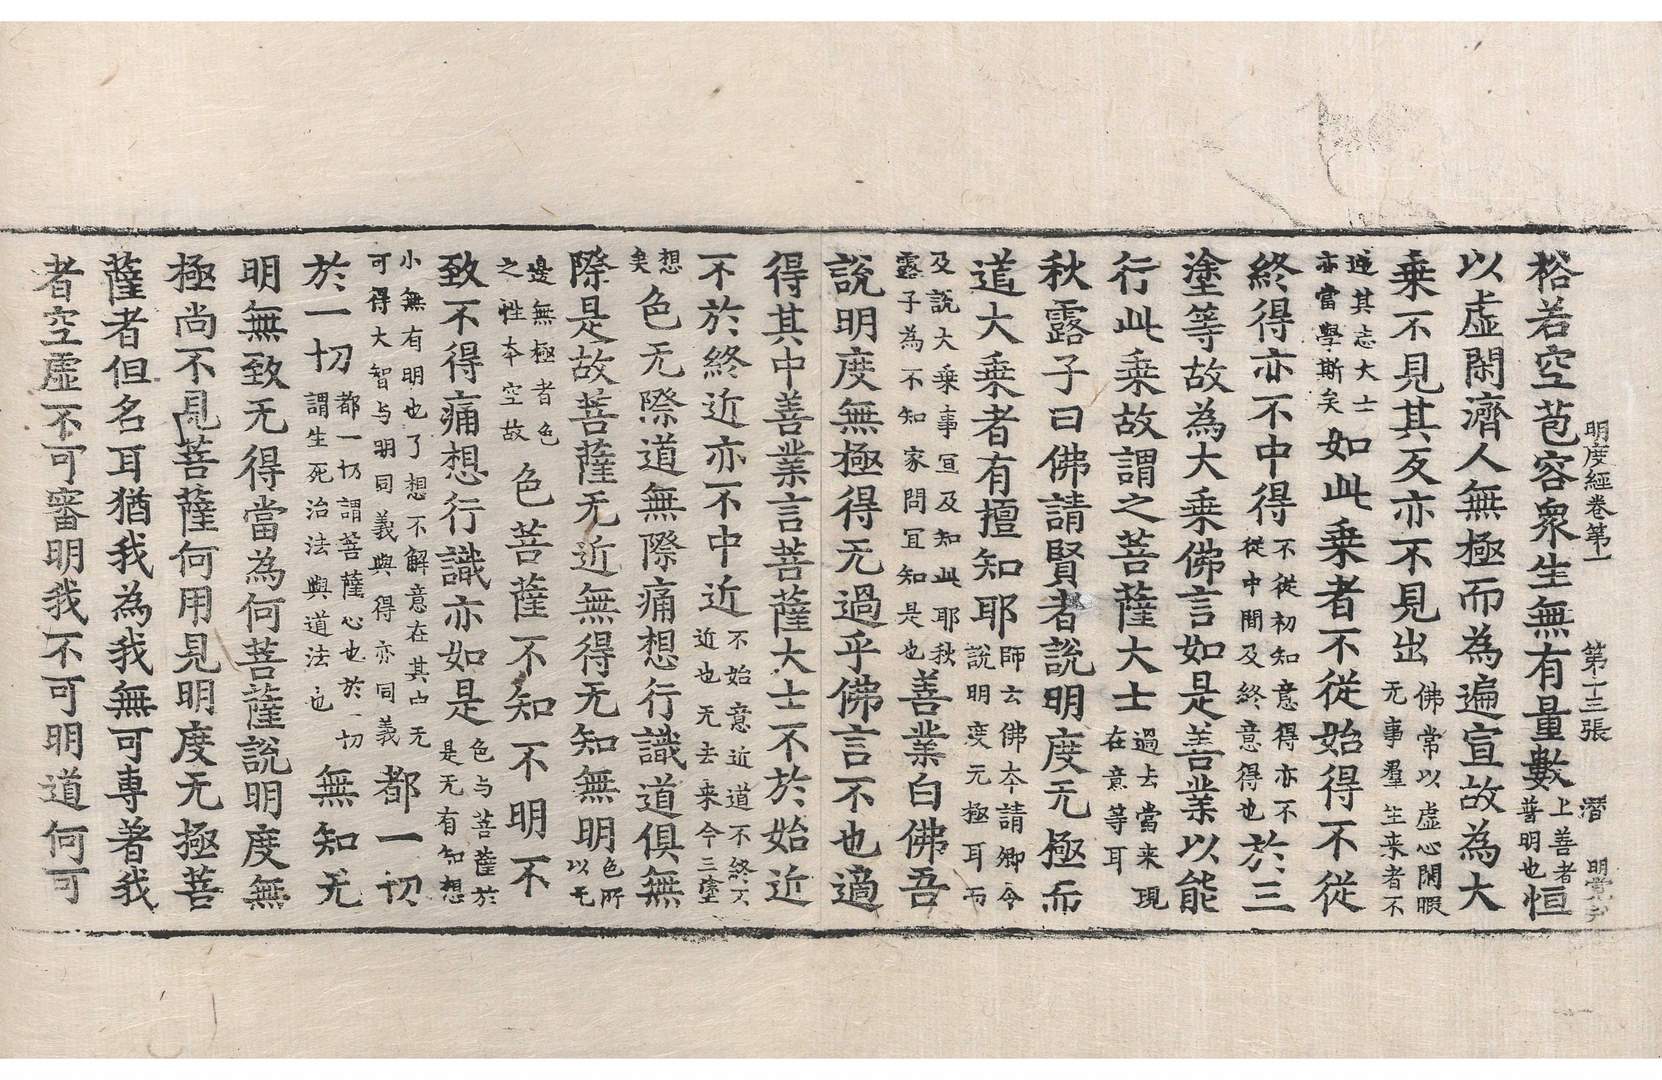 明度經卷第一 第十三張 潛
裕若空苞容衆生無有量數上善者普明也恒
以虛閑濟人無極而為遍宣故為大
乗不見其反亦不見出佛常以虛心閑暇无事羣生来者不
逆其志大士亦當學斯矣如此乗者不從始得不從
終得亦不中得不從初知意得亦不從中間及終意得也於三
塗等故為大乗佛言如是善業以能
行此乗故謂之菩薩大士過去當来現在意等耳
秋露子曰佛請賢者說明度无極而
道大乗者有擅知耶師云佛夲請卿令說明度无極耳而
及說大乗事冝及知此耶秋露子為不知家問冝知是也善業白佛吾
說明度無極得无過乎佛言不也適
得其中善業言菩薩大士不於始近
不於終近亦不中近不始意近道不終不近也无去来今三塗
想矣色无際道無際痛想行識道俱無
際是故菩薩无近無得无知無明色所以无
邊無極者色之性夲空故色菩薩不知不明不
致不得痛想行識亦如是色与菩薩於是无有知想
小無有明也了想不解意在其中无可得大智与明同義與得亦同義都一切
於一切都一切謂菩薩心也於一切謂生死治法與道法也無知无
明無致无得當為何菩薩說明度無
極尚不見菩薩何用見明度无極菩
薩者但名耳猶我為我無可專著我
者空虛不可審明我不可明道何可